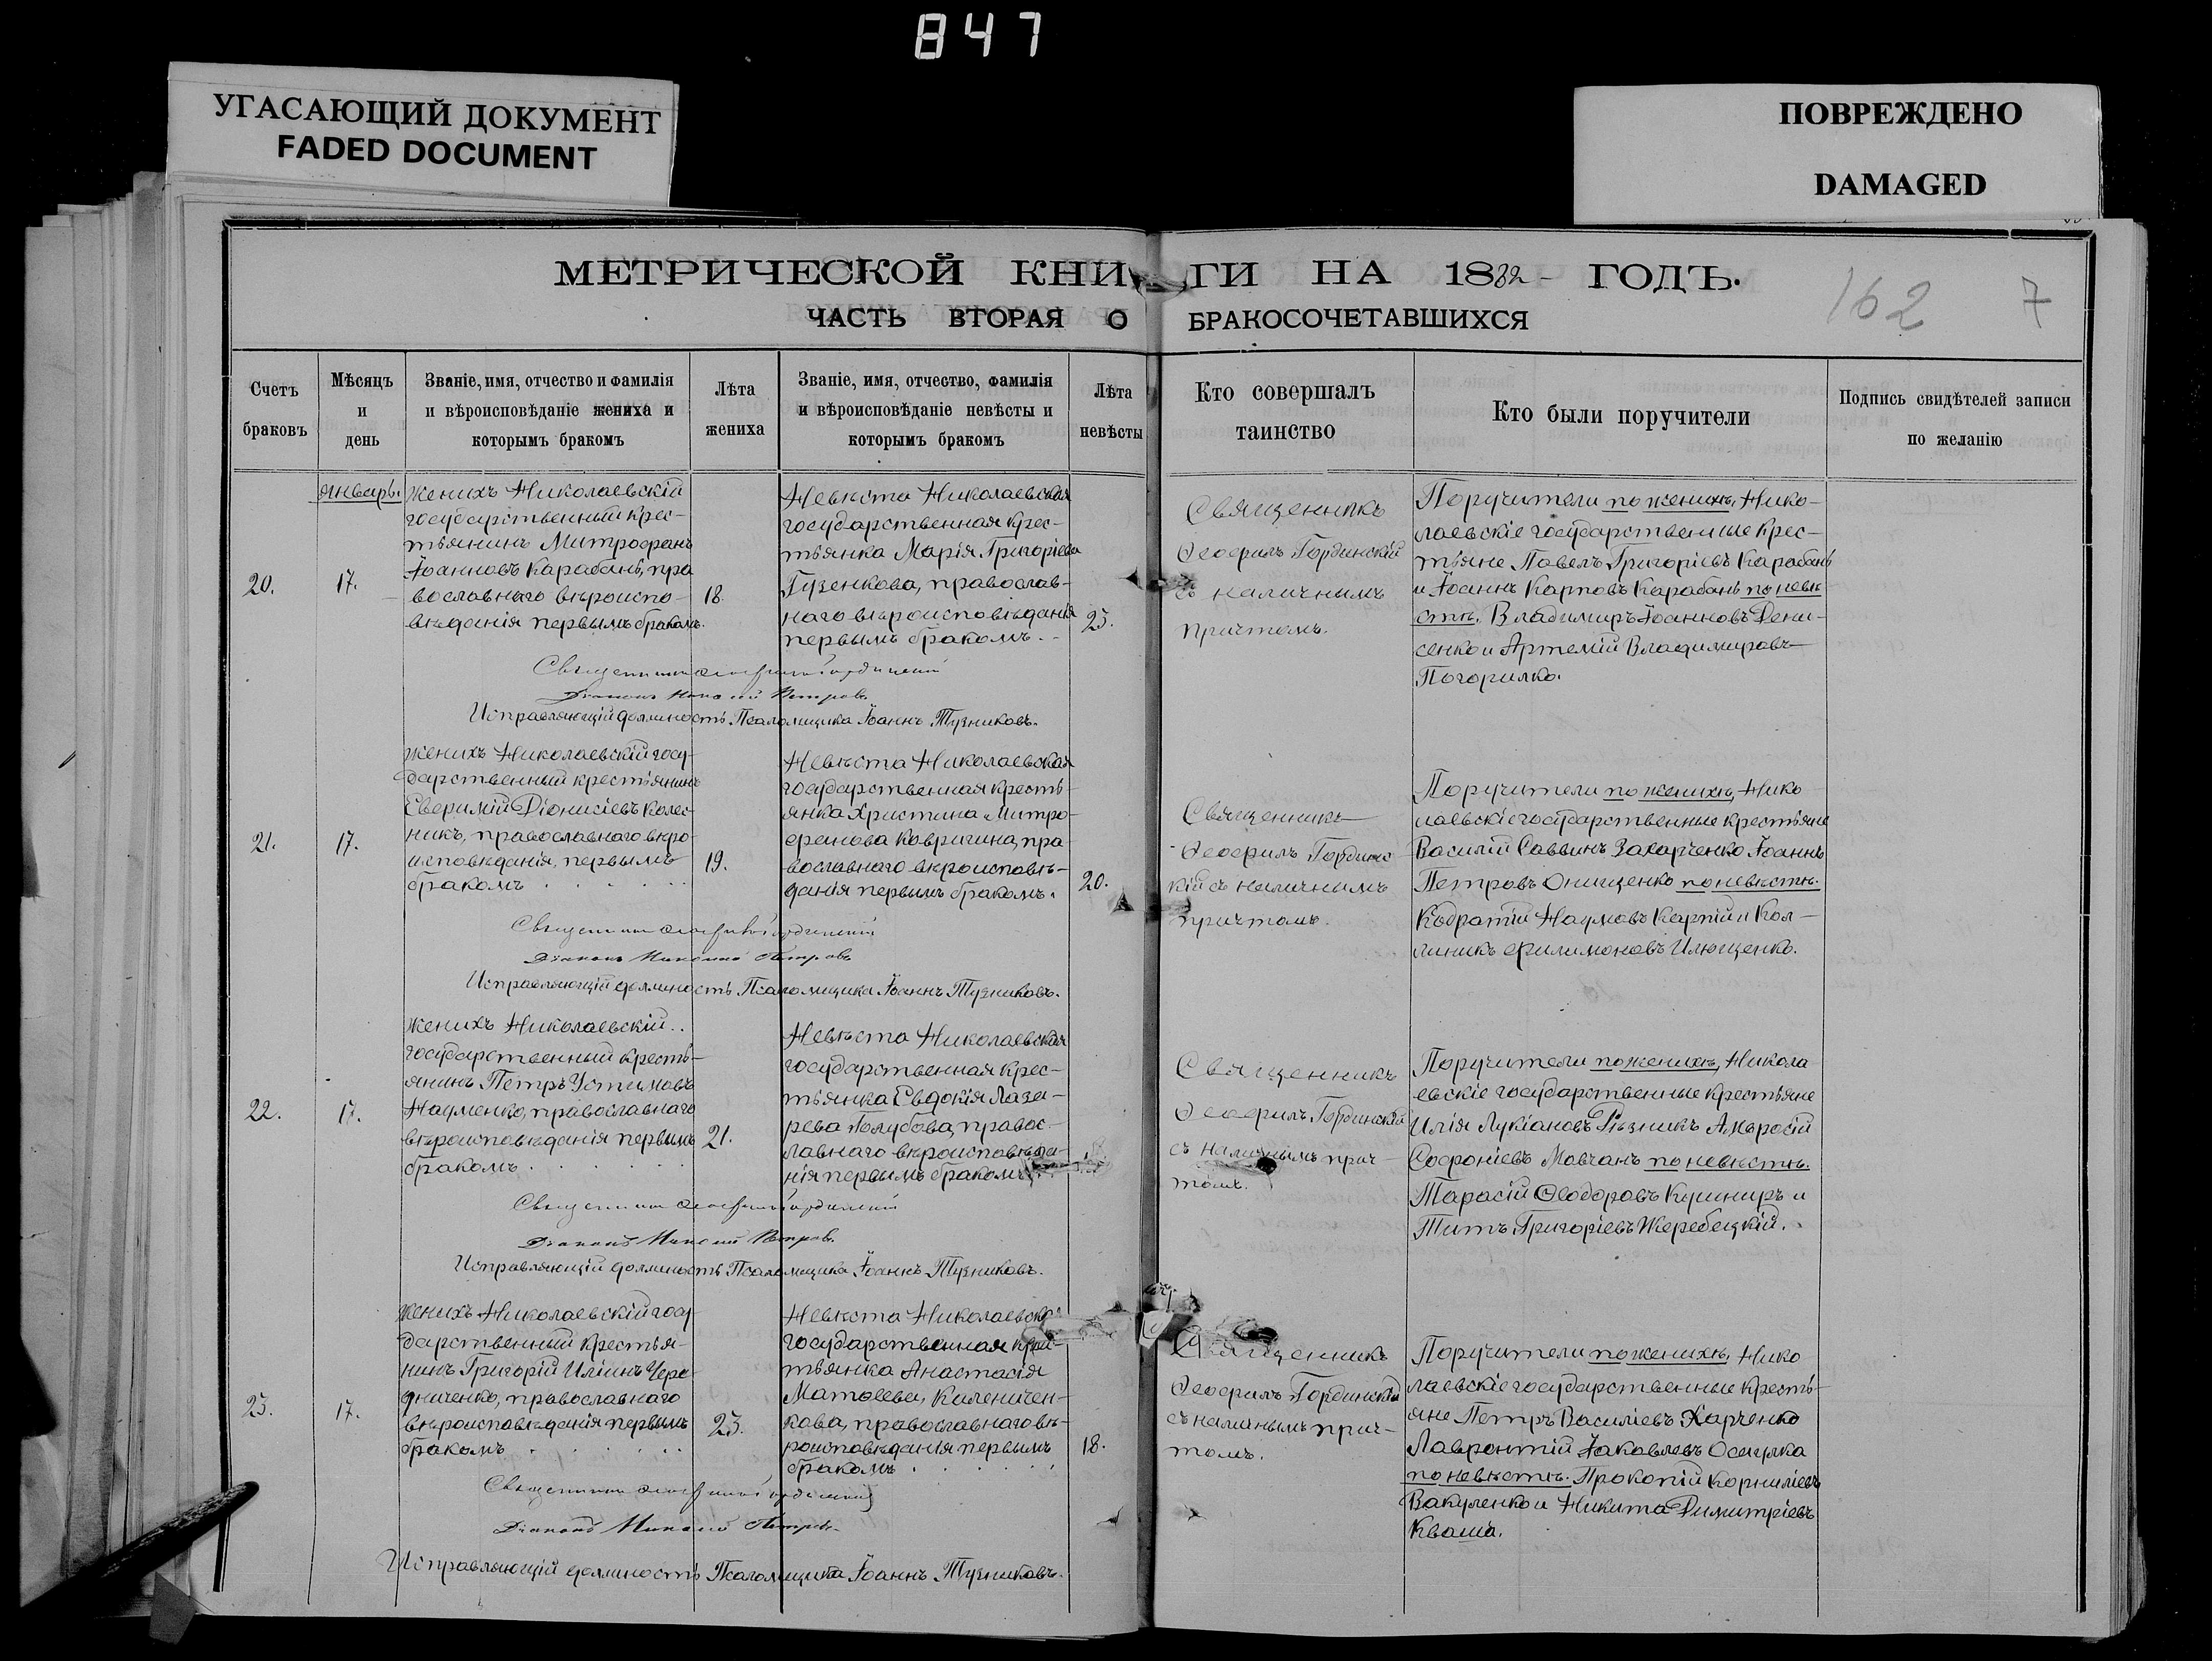 847
УГАСАЮЩИЙ ДОКУМЕНТ
FADED DOCUMENT
ПОВРЕЖДЕНО
DAMAGED
МЕТРИЧЕСКОЙ КНИГИ НА 1882 ГОДЪ.
162 7
ЧАСТЬ ВТОРАЯ О БРАКОСОЧЕТАВШИХСЯ
Счетъ
браковъ
Мѣсяцъ
и
день
Званіе, имя, отчество и фамилія
и вѣроисповѣданіе жениха и
которымъ бракомъ
Лѣта
жениха
Званіе, имя, отчество, фамилія
и вѣроисповѣданіе невѣсты и
которымъ бракомъ
Лѣта
невѣсты
Кто совершалъ
таинство
Кто были поручители
Подпись свидѣтелей записи
по желанію
январь.
20.
17.
Женихъ Николаевскій
государственный крес-
тьянинъ Митрофанъ
Іоанновъ Карабань, пра
вославнаго вѣроиспо-
вѣданія первымъ бракомъ.
18.
Невѣста Николаевская
государственная крес-
тьянка Марія Григоріева
Гузенкова, православ-
наго вѣроисповѣданія
первымъ бракомъ.
23.
Священникъ
Ѳеофилъ Гординскій
съ наличнымъ
причтомъ.
Поручители по женихѣ, Нико-
лаевскіе государственные крес-
тьяне Павелъ Григоріевъ Карабань
и Іоаннъ Карповъ Карабань по невѣ
стѣ. Владимиръ Іоанновъ Дени-
сенко и Артемій Владимировъ
Погорилко.
Священникъ Ѳеофилъ Гординскій
Діаконъ Петровъ
Исправляющій должность Псаломщика Іоаннъ Тузниковъ.
21.
17.
Женихъ Николаевскій госу-
дарственный крестьянинъ
Евфимій Діонисіевъ Колес-
никъ, православнаго вѣро-
исповѣданія, первымъ
бракомъ
19.
Невѣста Николаевская
государственная кресть-
янка Христина Митро-
фанова Ковригина, пра
вославнаго вѣроисповѣ-
данія первымъ бракомъ.
20.
Священникъ
Ѳеофилъ Гординс
кій съ наличнымъ
причтомъ.
Поручители по женихѣ, Нико
лаевскіе государственные крестьяне
Василій Саввинъ Захарченко Іоаннъ
Петровъ Онищенко по невѣстѣ.
Кодратій Наумовъ Карпій и Кал-
линикъ Филимоновъ Илющенко.
Священникъ Ѳеофилъ Гординскій
Діаконъ Петровъ
Исправляющій должность Псаломщика Іоаннъ Тузниковъ.
22.
17.
Женихъ Николаевскій
государственный кресть-
янинъ Петръ Устимовъ
Науменко, православнаго
вѣроисповѣданія первымъ
бракомъ
21.
Невѣста Николаевская
государственная крес-
тьянка Евдокія Лаза-
рева Голубова, правос-
лавнаго вѣроисповѣда-
нія первымъ бракомъ
Священникъ
Ѳеофилъ Гординскій
съ наличнымъ прич-
томъ.
Поручители по женихѣ, Никола
евскіе государственные крестьяне
Илія Лукіановъ Рѣзникъ Амвросій
Софроніевъ Мовчанъ по невѣстѣ.
Тарасій Ѳеодоровъ Кушниръ и
Титъ Григоріевъ Жеребецкій.
Священникъ Ѳеофилъ Гординскій
Діаконъ Петровъ
Исправляющій должность Псаломщика Іоаннъ Тузниковъ.
23.
17.
Женихъ Николаевскій госу
дарственный крестья-
нинъ Григорій Иліинъ Чере
дниченко, православнаго
вѣроисповѣданія первымъ
бракомъ
23.
Невѣста Николаевская
государственная крес-
тьянка Анастасія
Матѳеева, Калениче­н-
кова, православнаго вѣ-
роисповѣданія первымъ
бракомъ
18.
Священникъ
Ѳеофилъ Гординскій
съ наличнымъ прич-
томъ.
Поручители по женихѣ, Нико
лаевскіе государственные кресть-
яне Петръ Василіевъ Харченко
Лаврентій Іаковлевъ Осацулка
по невѣстѣ. Прокопій Корниліевъ
Вакуленко и Никита Димитріевъ
Кваша.
Священникъ Ѳеофилъ Гординскій
Діаконъ Петровъ
Исправляющій должность Псаломщика Іоаннъ Тузниковъ.